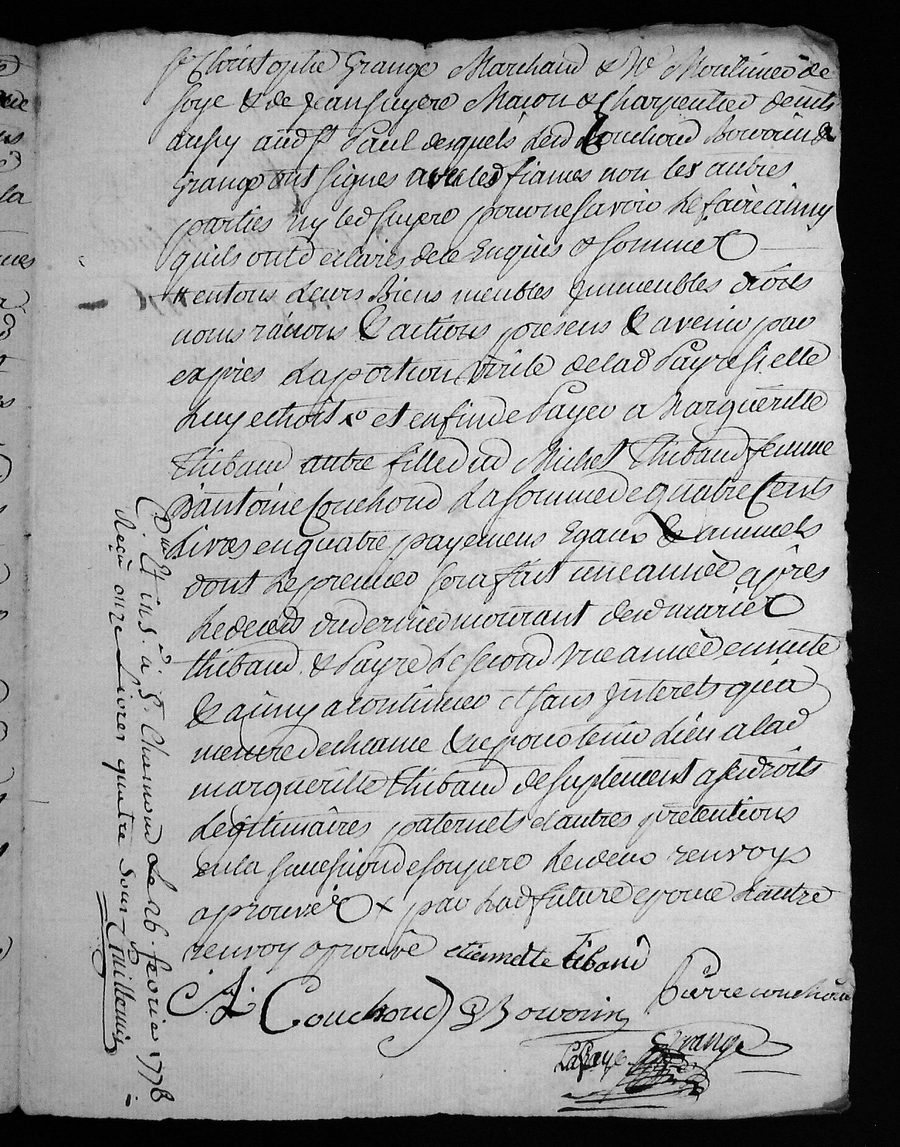 Sr Christophe Grange Marchand & Me Moulinier de
soye & de Jean Juyere Macon & Charpentier demts
aussy audt St Paul desquels led Couchoud Bouvoin &
Grange ont signés avec led fiames non les autres
parties ny led Juyere pour ne savoir le faire ainsy
quils ont declarés de ce Enquis & sommés
+ entous leurs Biens meubles Jmmeubles droits
noms raisons & actions presens & avenir par
exprès la portion virile de lad Payre si elle
luy echoit x et enfin de Payer a Margueritte
Thibaud autre fille dud Michel Thibaud femme
D'antoine Couchoud La somme de quatre Cents
Livres en quatre payemens Egaux & annuels
dont le premier sera fait une année après
le decés du dernier mourant desd mariés
Thibaud & Payre le second une année ensuite
& ainsy a continuer & sans Jnterets qu'a
mesure decheance & ce pour tenir Lieu a lad
margueritte Thibaud de suplement a ses droits
Legitimaires paternels & autres prétentions
en la succession de son pere les deux renvoys
aprouvés x par lad future epouse L'autre
renvoy aprouvé etiennette tibaud
A. Couchoud Bouvoin Pierre couchoud
Lafaye Grange
Et ins. à St Chamond Le 26. fevrier 1778
Reçu onze Livres quatre sous